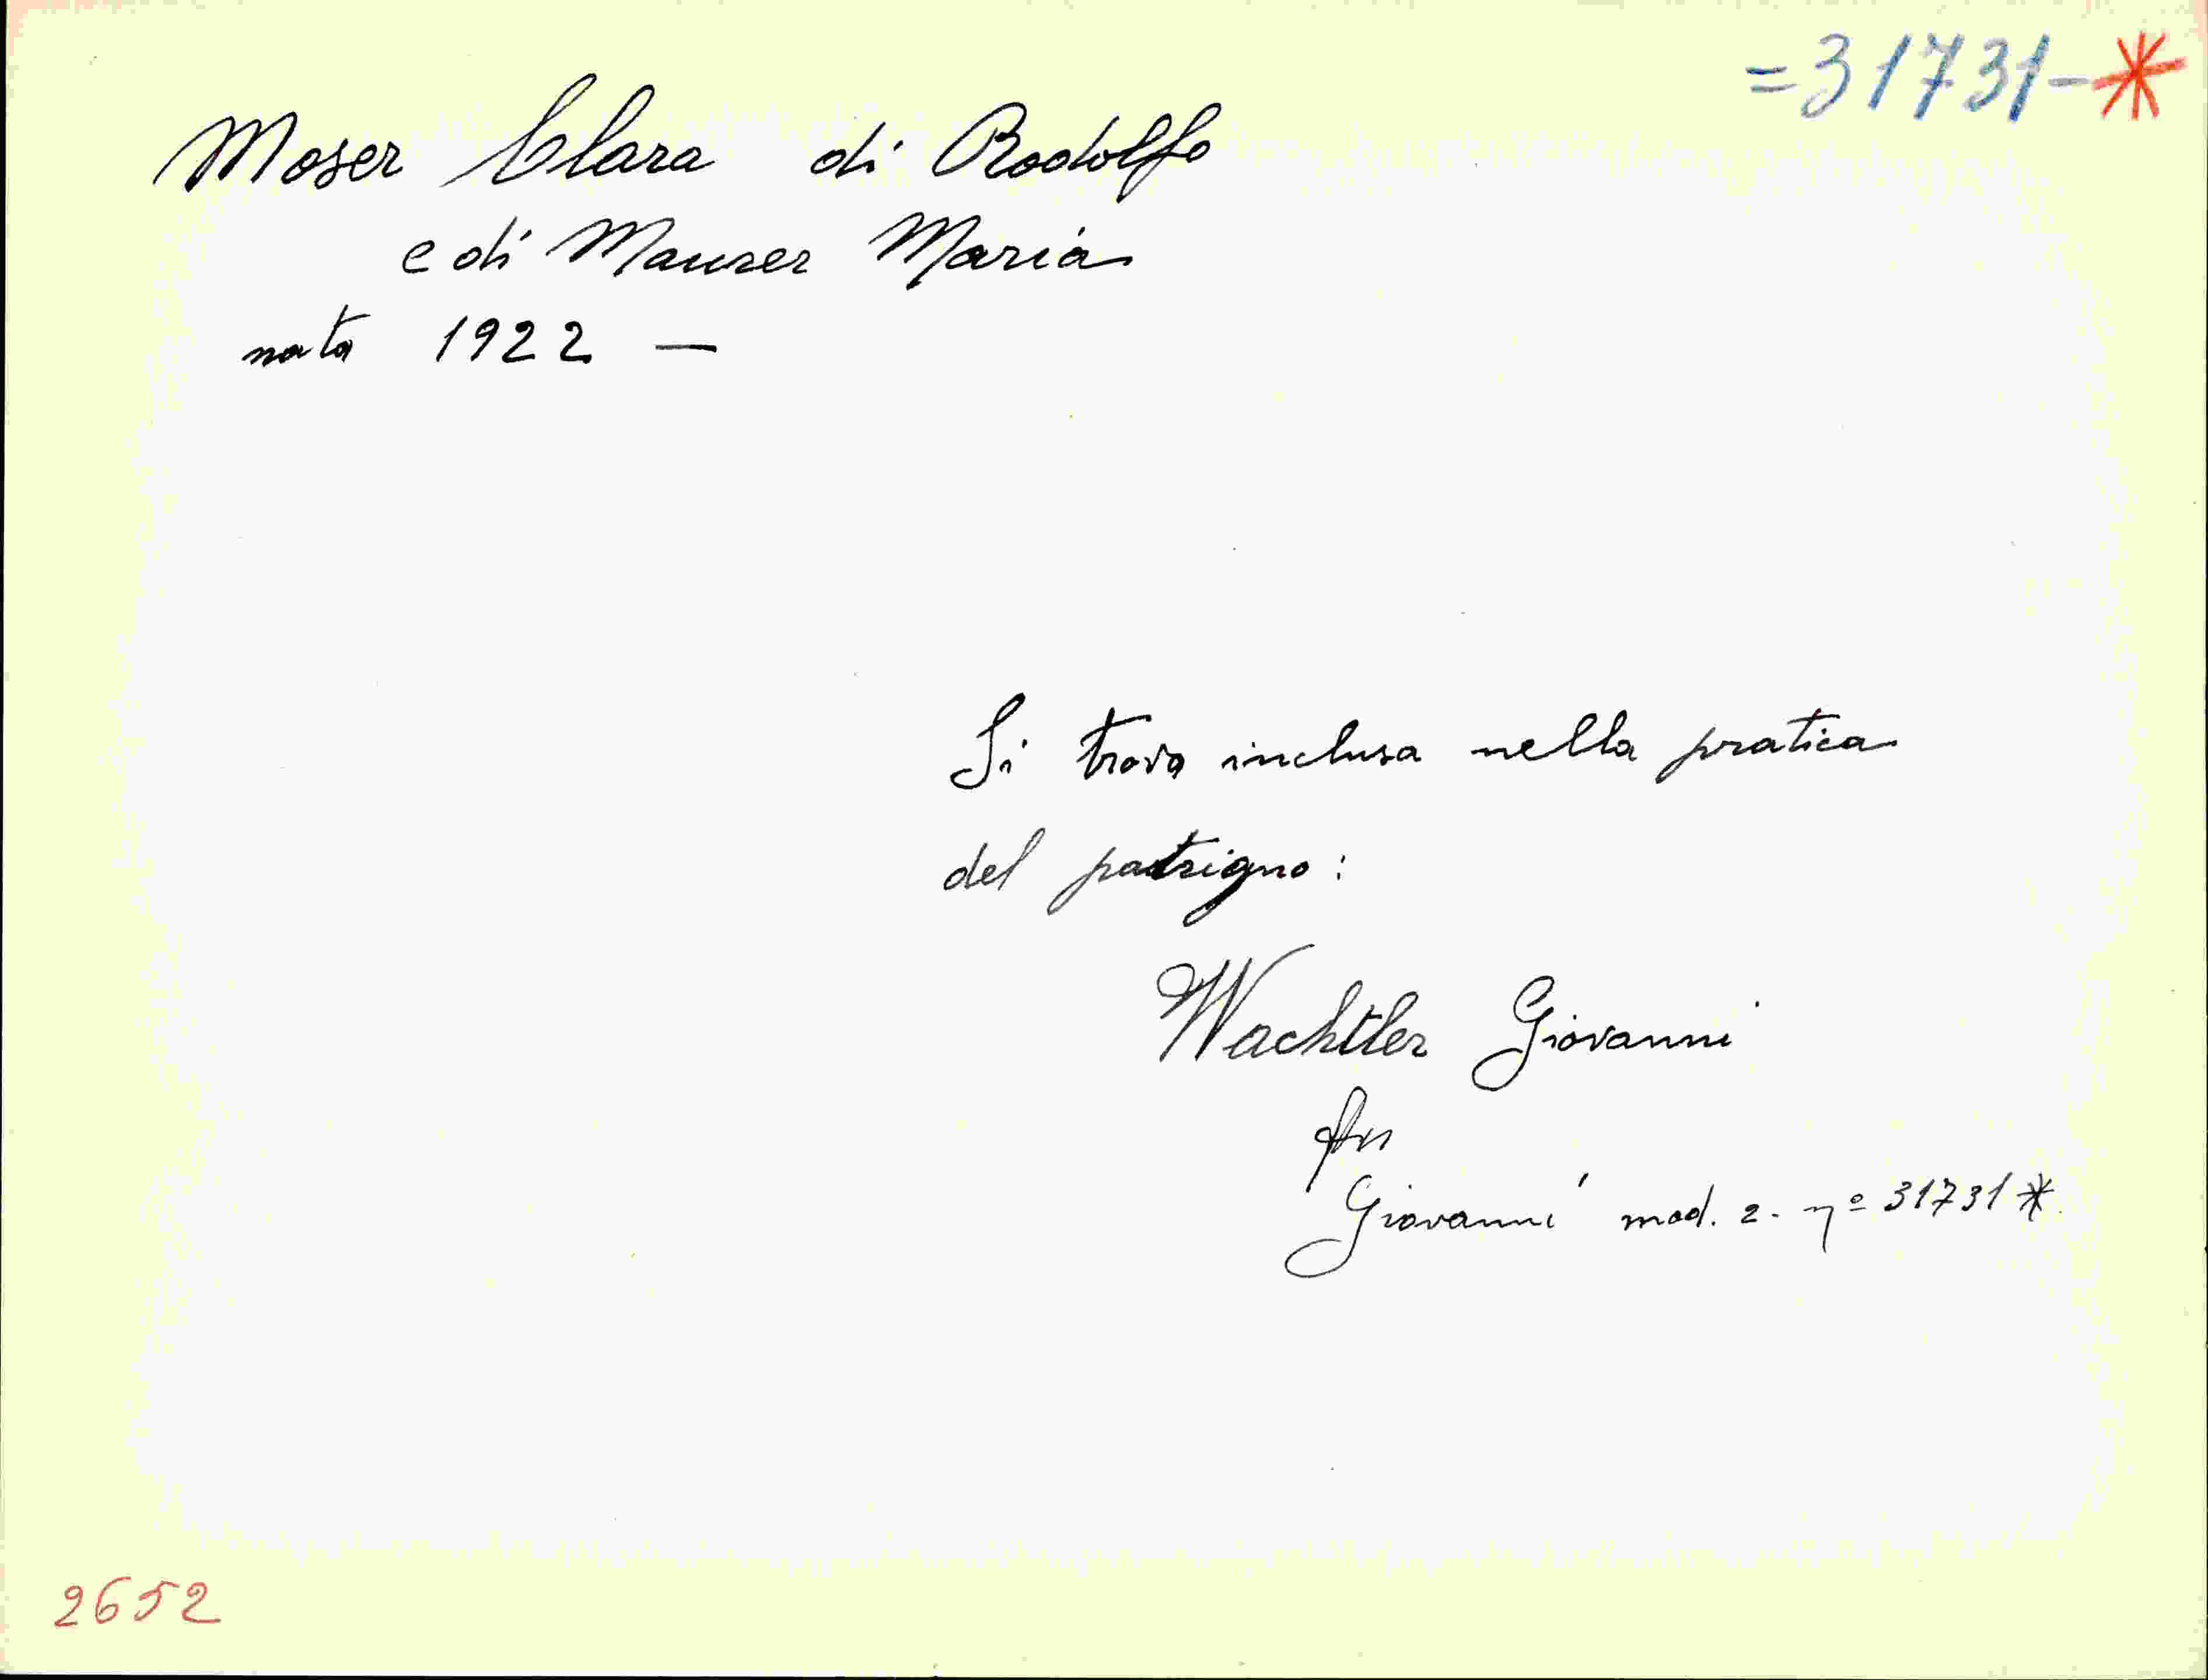 = 31731 - *
Moser Clara di Rodolfo
e di Maurer Maria
nata 1922 —
Si trova inclusa nella pratica
del patrigno:
Wachtler Giovanni
fu
Giovanni mod. 2. nº 31731 *
2652